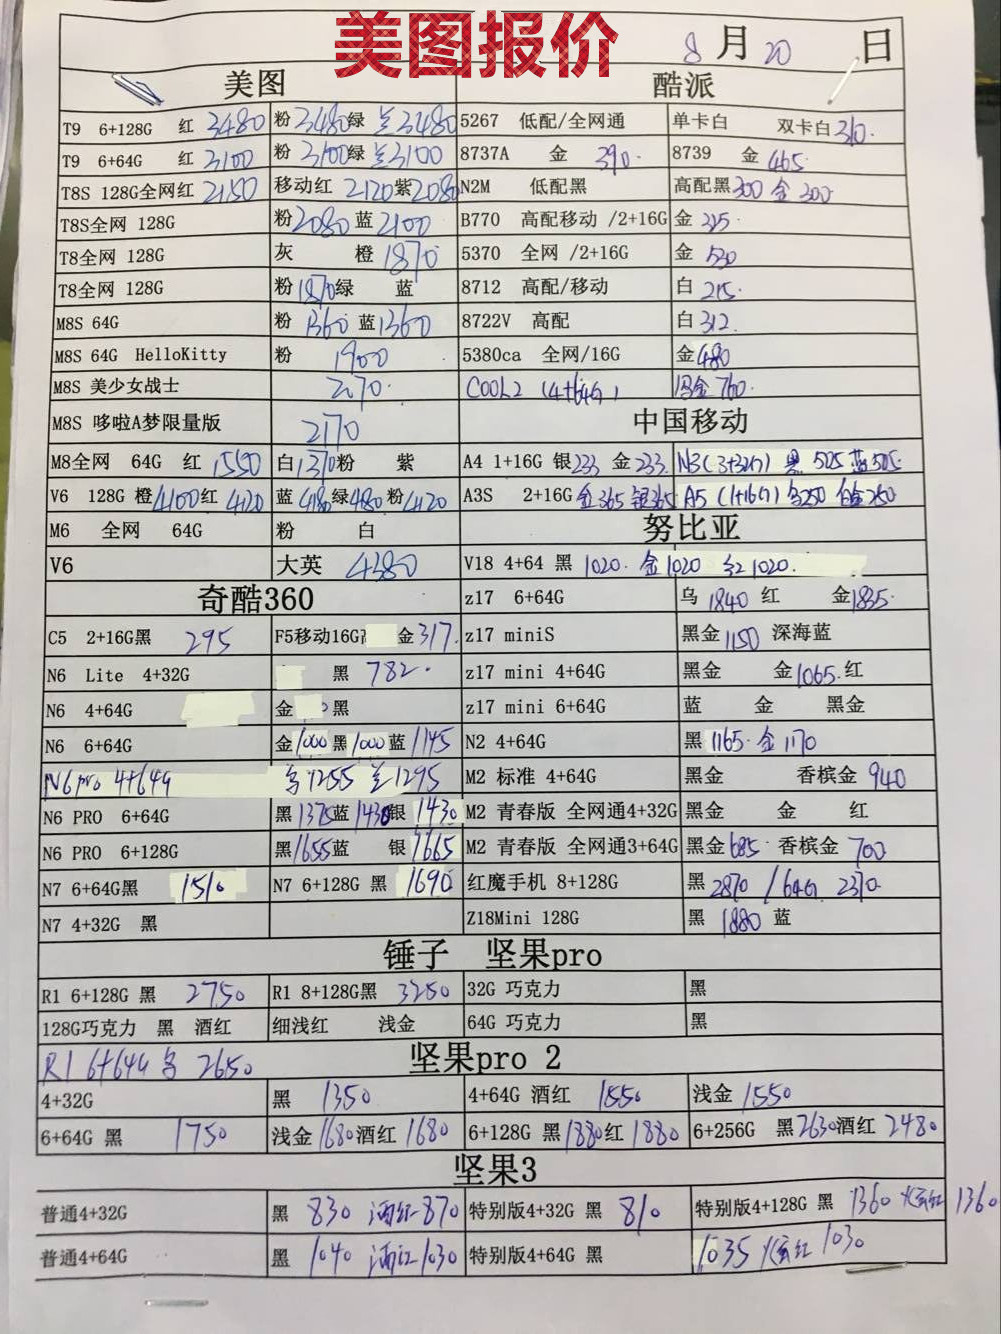 美图报价
8月20日
美图 酷派
T9 6+128G 红 3480 粉 3480 绿 兰3480 5267 低配/全网通 单卡白 双卡白 310.
T9 6+64G 红 3100 粉 3100 绿 兰3100 8737A 金 390. 8739 金 465.
T8S 128G全网红 2150 移动红 2120 紫2080 N2M 低配黑 高配黑300 金 300
T8S全网 128G 粉2080 蓝 2100 B770 高配移动 /2+16G 金 225.
T8全网 128G 灰 橙 1870 5370 全网 /2+16G 金 530
T8全网 128G 粉1870绿 蓝 8712 高配/移动 白 215.
M8S 64G 粉 1360 蓝1360 8722V 高配 白312.
M8S 64G HelloKitty 粉 1900 5380ca 全网/16G 金480
M8S 美少女战士 2070. COOL2 (4+64G) 760.
M8S 哆啦A梦限量版 2170 中国移动
M8全网 64G 红 1550 白1370粉 紫 A4 1+16G 银233 金 233. N3(3+32G) 黑 505 蓝505.
V6 128G 橙4100红 4120 蓝 4180绿 480 粉4120 A3S 2+16G 金365 银365 A5 (1+16G) 250 260
M6 全网 64G 粉 白 努比亚
V6 大英 4380 V18 4+64 黑 1020. 金1020 红1020.
奇酷360 z17 6+64G 乌 1840 红 金1835.
C5 2+16G黑 295 F5移动16G 金317. z17 miniS 黑金1150 深海蓝
N6 Lite 4+32G 黑 782. z17 mini 4+64G 黑金 金1065.红
N6 4+64G 金 黑 z17 mini 6+64G 蓝 金 黑金
N6 6+64G 金1000 黑1000蓝1145 N2 4+64G 黑 1165. 金 1170
N6pro 4+64G 乌1255 兰1295 M2 标准 4+64G 黑金 香槟金 940
N6 PRO 6+64G 黑1375蓝 1430银 1430 M2 青春版 全网通4+32G 黑金 金 红
N6 PRO 6+128G 黑1655蓝 银 1665 M2 青春版 全网通3+64G 黑金685. 香槟金 700
N7 6+64G黑 1510 N7 6+128G 黑 1690 红魔手机 8+128G 黑 2870 /64G 2370.
N7 4+32G 黑 Z18Mini 128G 黑 1880 蓝
锤子 坚果pro
R1 6+128G 黑 2750 R1 8+128G黑 3250 32G 巧克力 黑
128G巧克力 黑 酒红 细浅红 浅金 64G 巧克力 黑
R1 6+64G 乌 2650 坚果pro 2
4+32G 黑 1350 4+64G 酒红 1550 浅金 1550
6+64G 黑 1750 浅金1680酒红 1680 6+128G 黑1880红 1880 6+256G 黑2630酒红 2480
坚果3
普通4+32G 黑 830 酒红870 特别版4+32G 黑 810 特别版4+128G 黑 1360 红 1360
普通4+64G 黑 1040 酒红1030 特别版4+64G 黑 1035 红 1030